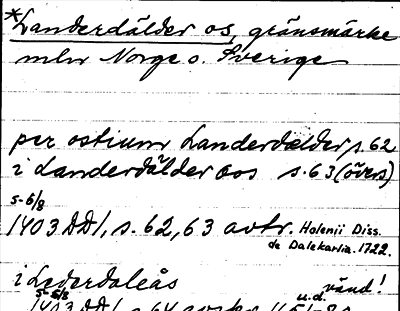 *Landerdälder os, gränsmärke
mln Norge o. Sverige
per ostium Landerdælder, s. 62
i Landerdälder oos s. 63 (övers)
5-6/8
1403 DD1, s. 62, 63 avtr. Holenii Diss.
de Dalekarlia. 1722.
i Lederdaleås vänd!
5-6/8 u.d.
1403 DD1 s. 64